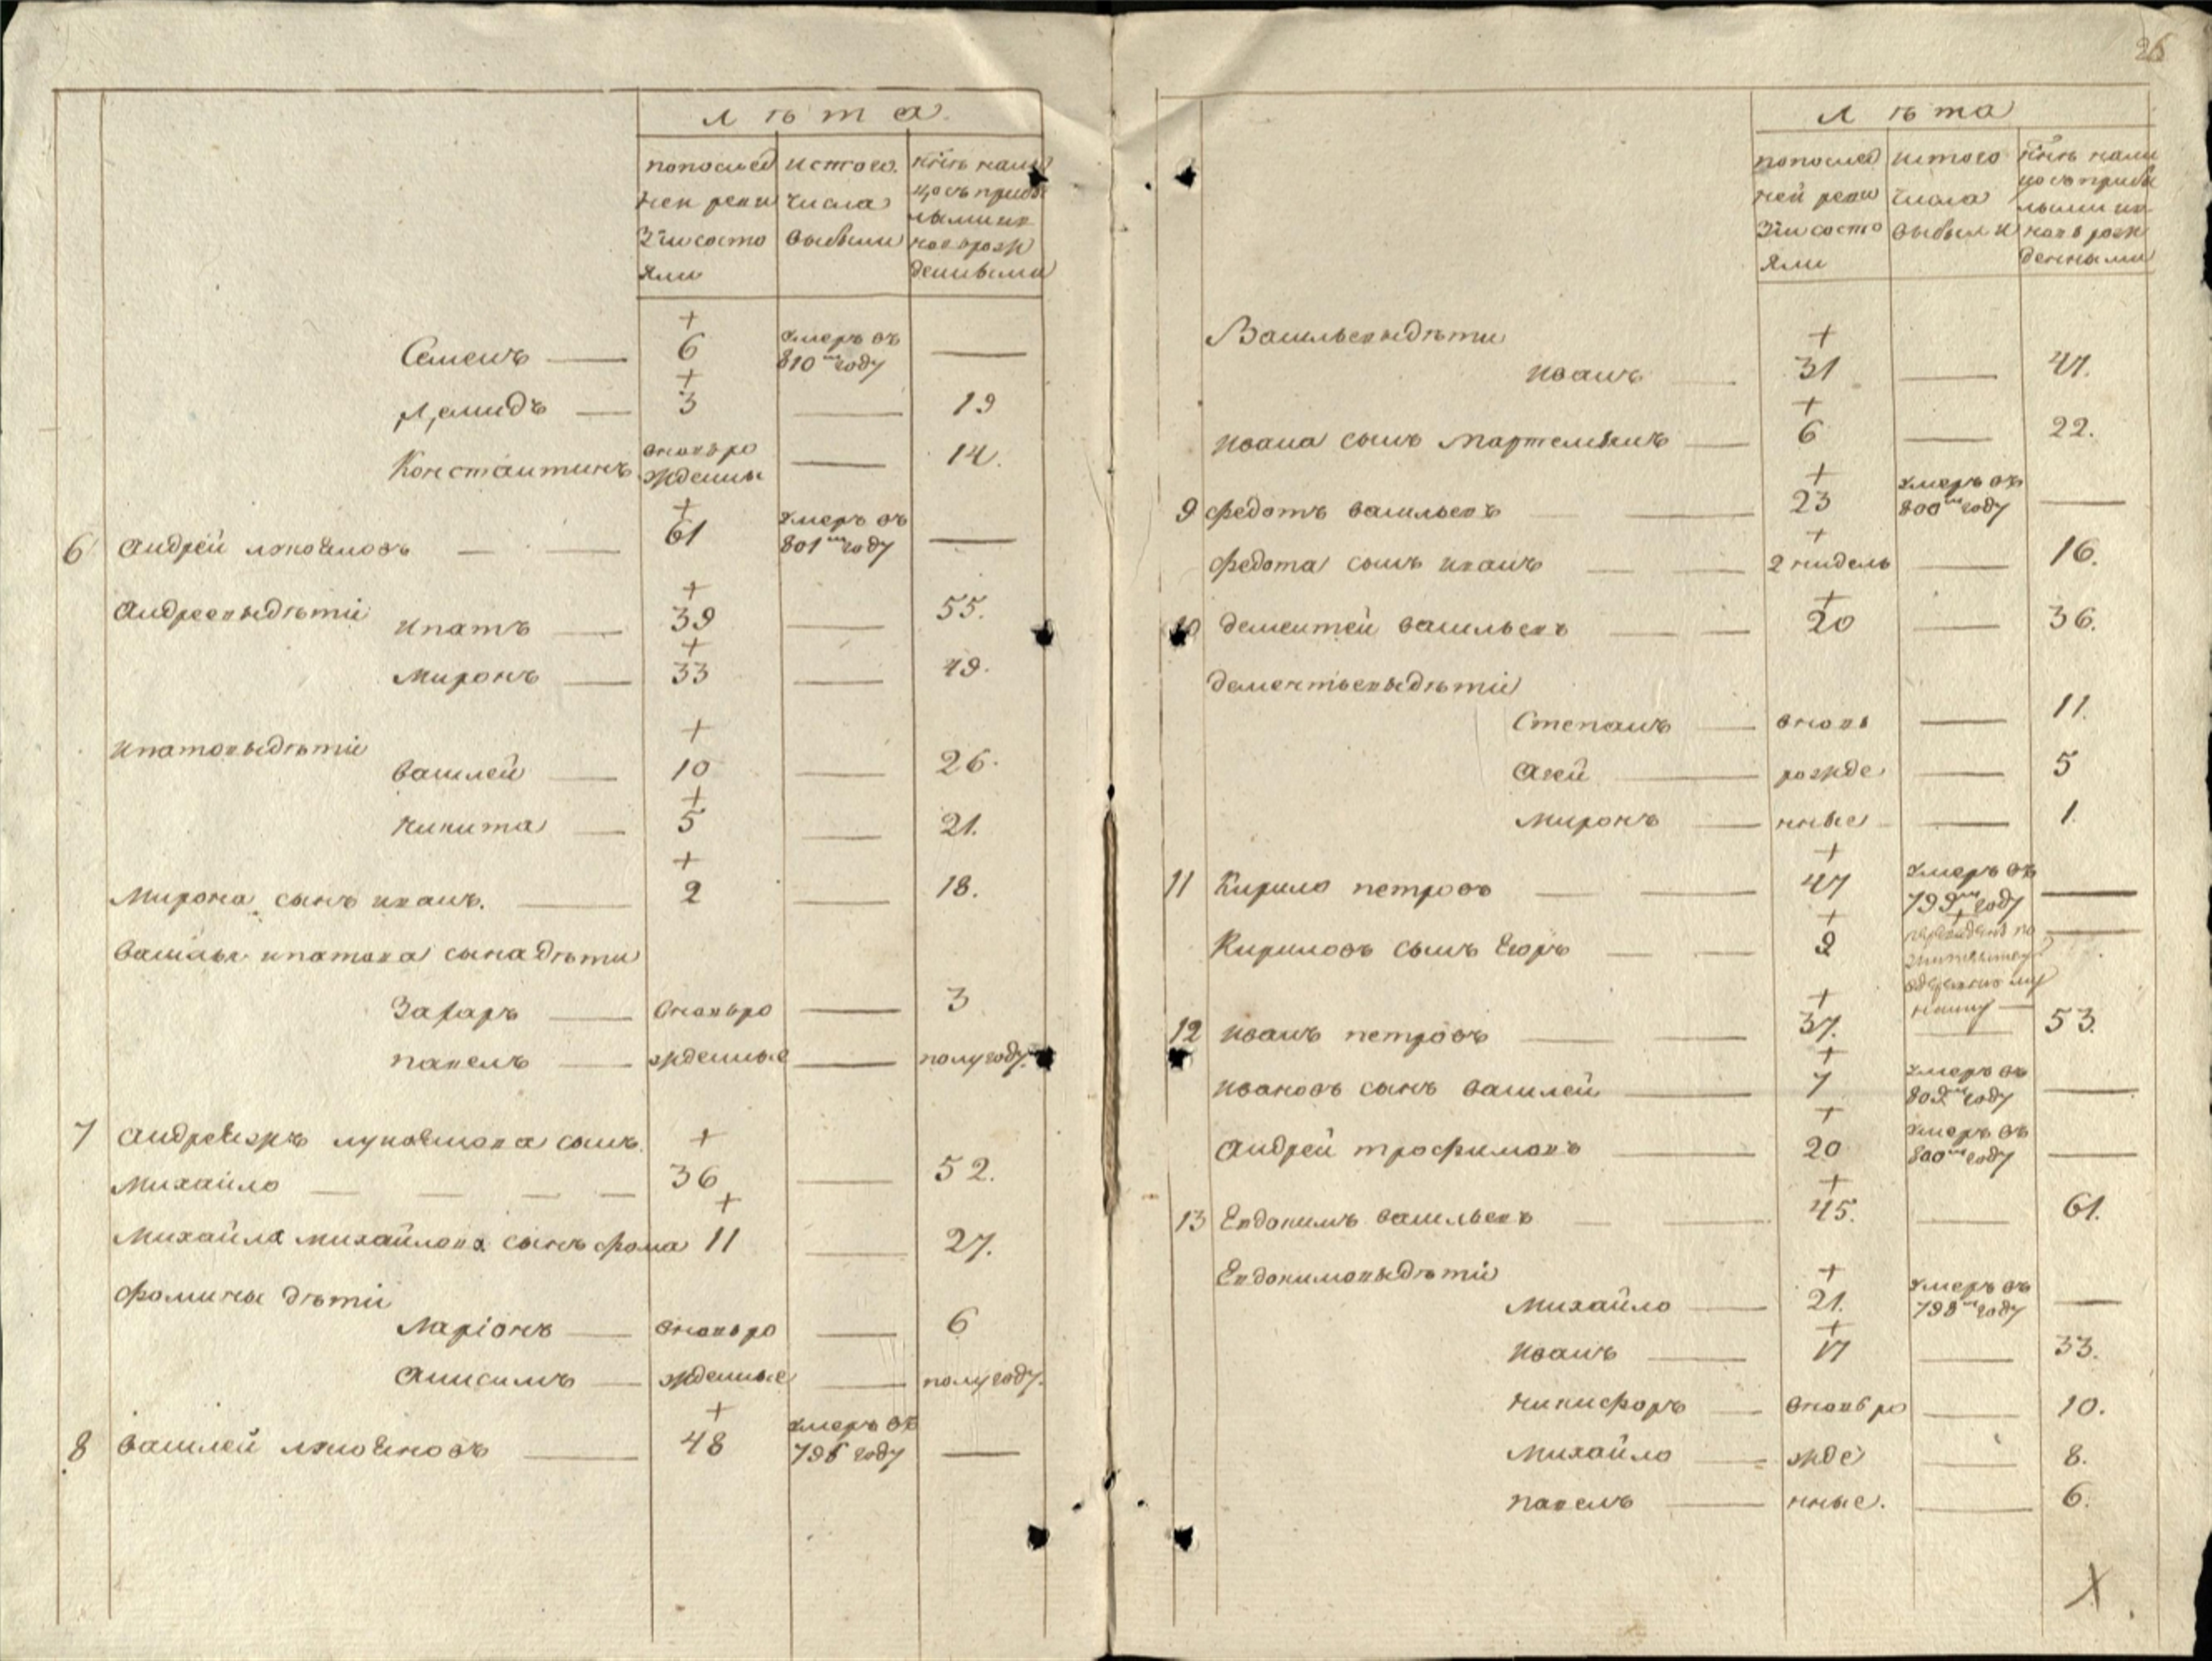 26
Лѣта
попослед
ней реви
зии состо
яли
истого
числа
выбыли
ныне нали
цо съ прибы
лыми и
новорож
денными
Семенъ — 6 умеръ въ 810м году —
3 — 19
Константинъ вновь рожденны — 14.
6 Андрей — 61 умеръ въ 801м году —
Андреевы дѣти
Ипатъ — 39 — 55.
Миронъ — 33 — 49.
Ипатовы дѣти
Василей — 10 — 26.
Никита — 5 — 21.
Мирона сынъ иванъ. — 2 — 18.
Василья ипатова сына дѣти
Захаръ — вновь ро — 3
павелъ — жденные — полугоду.
7 сынъ
Михайло — 36 — 52.
Михайла михайлова сынъ фома 11 — 27.
Фомины дѣти
Ларіонъ — вновь ро — 6
Анисимъ — жденные — полугоду.
8 Василей — 48 умеръ въ 796 году —
Лѣта
попослед
ней реви
зіи состо
яли
истого
числа
выбыли
ныне нали
цо съ прибы
лыми и
новорож
денными
Васильевы дѣти
Иванъ — 31 — 47.
Ивана сынъ — 6 — 22.
9 Федотъ васильевъ — 23 умеръ въ 800м году —
Федота сынъ иванъ — 2 нидель — 16.
10 Дементей васильевъ — 20 — 36.
Дементьевы дѣти
Степанъ — вновь — 11.
Агей — рожде — 5
Миронъ — нные — 1.
11 Кирило петровъ — 47 умеръ въ 799м году —
Кириловъ сынъ Егоръ — 9
12 Иванъ петровъ — 37. — 53.
Ивановъ сынъ василей — 7 умеръ въ 802м году —
Андрей трофимовъ — 20 умеръ въ 800м году —
13 Евдокимъ васильевъ — 45. — 61.
Евдокимовы дѣти
Михайло — 21. умеръ въ 798м году —
Иванъ — 17 — 33.
Никифоръ — вновь ро — 10.
Михайло — жде — 8.
павелъ — нные. — 6.